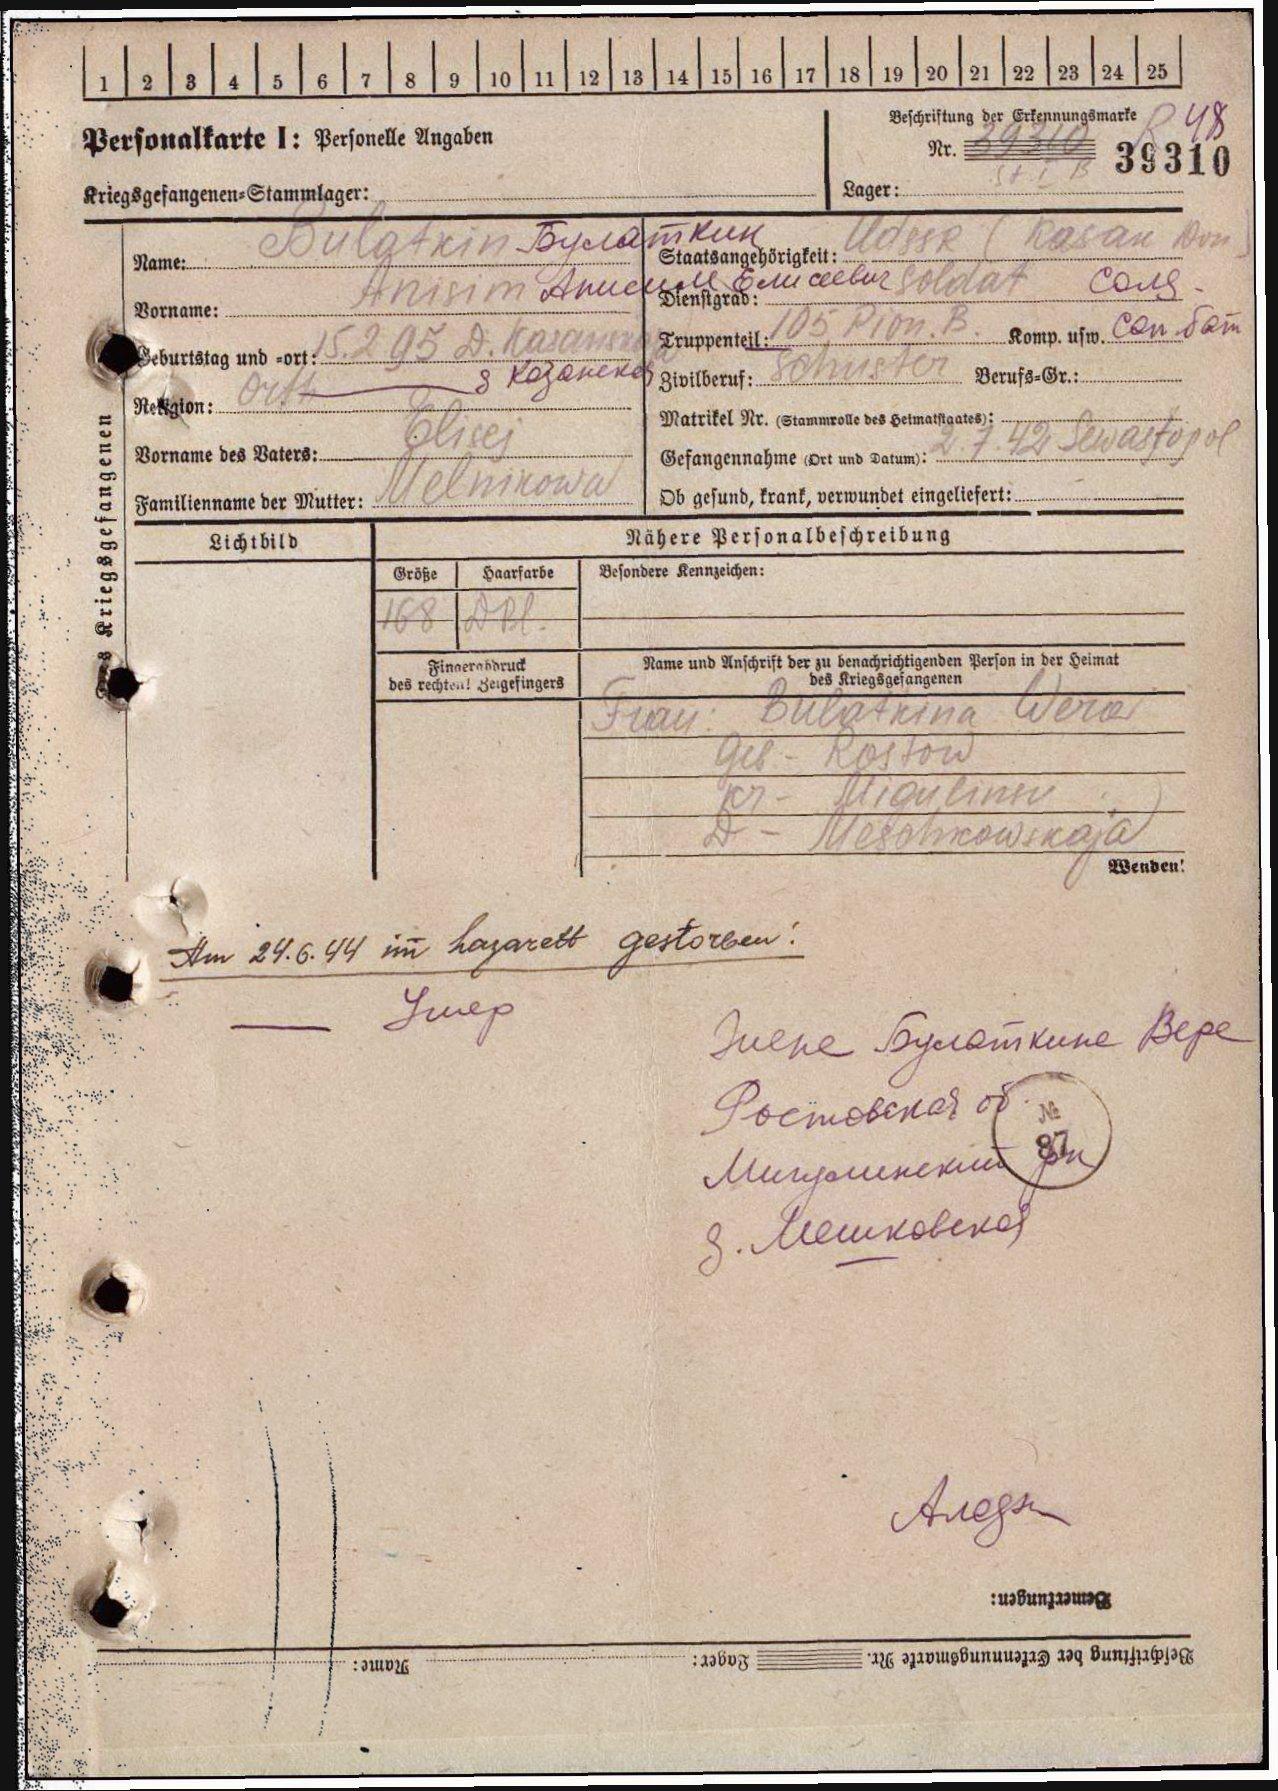 1 2 3 4 5 6 7 8 9 10 11 12 13 14 15 16 17 18 19 20 21 22 23 24 25
Personalkarte I: Personelle Angaben
Beschriftung der Erkennungsmarke
48
Nr. 39310 39310
St I B
Kriegsgefangenen-Stammlager:
Lager:
Name: Bulatkin Булаткин
Staatsangehörigkeit: UdSSR (Kasan Don
Vorname: Anisim Анисим Елисеевич
Dienstgrad: Soldat Солд-
Geburtstag und -ort: 15.2.95 D. Kasanskaja
Truppenteil: 105 Pion. B. Komp. usw. Сап. бат
д Казанская
Religion: Orth
Zivilberuf: Schuster Berufs-Gr.:
Matrikel Nr. (Stammrolle des Heimatstaates):
Vorname des Vaters: Elisej
Gefangennahme (Ort und Datum): 2.7.42 Sewastopol
Familienname der Mutter: Melnikowa
Ob gesund, krank, verwundet eingeliefert:
des Kriegsgefangenen
Lichtbild
Nähere Personalbeschreibung
Größe Haarfarbe Besondere Kennzeichen:
168 DBl.
Fingerabdruck
des rechten! Zeigefingers
Name und Anschrift der zu benachrichtigenden Person in der Heimat
des Kriegsgefangenen
Frau: Bulatkina Wera
Geb - Rostow
Kr - Migulinsk
D - Meschkowskaja
Wenden!
Am 24.6.44 im Lazarett gestorben!
Умер
Жене Булаткине Вере
Ростовская об.
№
87
Мигулинский рн
д. Мешковская
Bemerkungen:
Beschriftung der Erkennungsmarke Nr. Lager: Name: